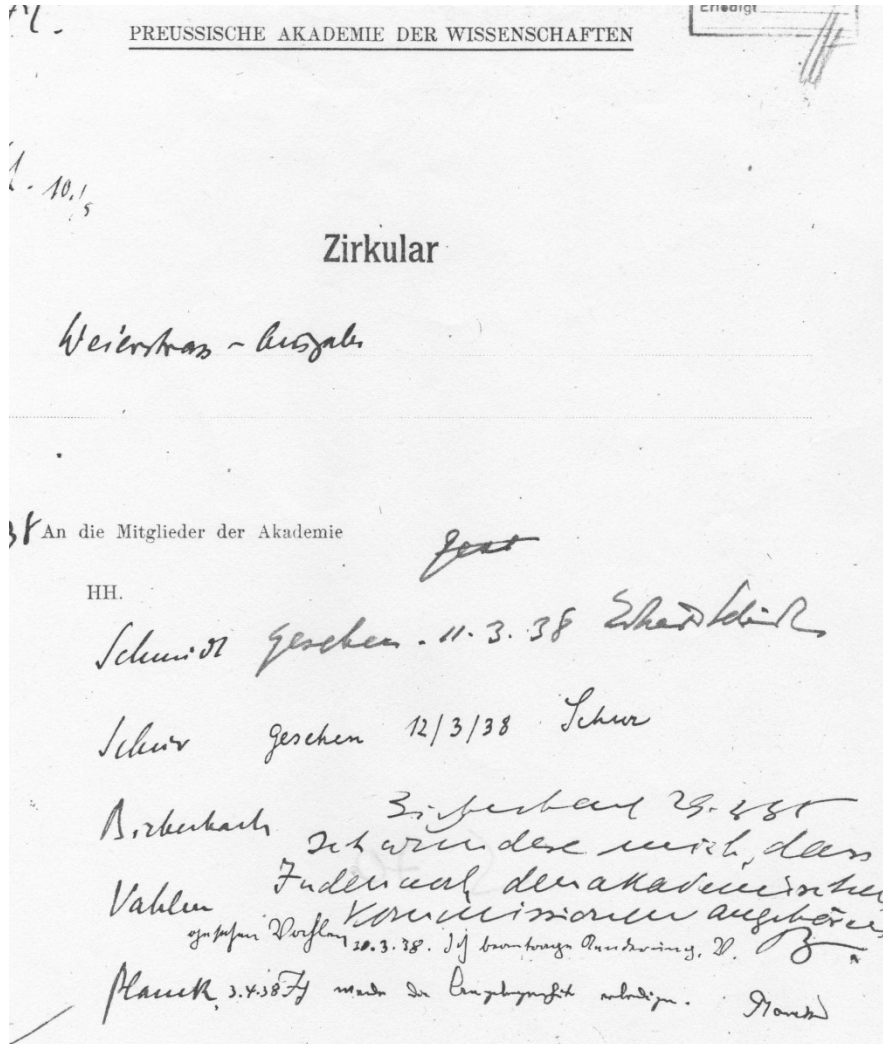 Erledigt
PREUSSISCHE AKADEMIE DER WISSENSCHAFTEN
10.
Zirkular
Weierstrass - Ausgabe
An die Mitglieder der Akademie
HH.
Schmidt gesehen. 11.3.38 Erhard Schmidt
Schur gesehen 12/3/38 Schur
Bieberbach Bieberbach 29.3.38
Ich wundere mich, dass
Juden noch den akademischen
Vahlen Kommissionen angehören
gesehen Vahlen 30.3.38. Ich beantrage Aenderung. V. B
Planck 3.4.38 Ich werde die Angelegenheit erledigen. Planck